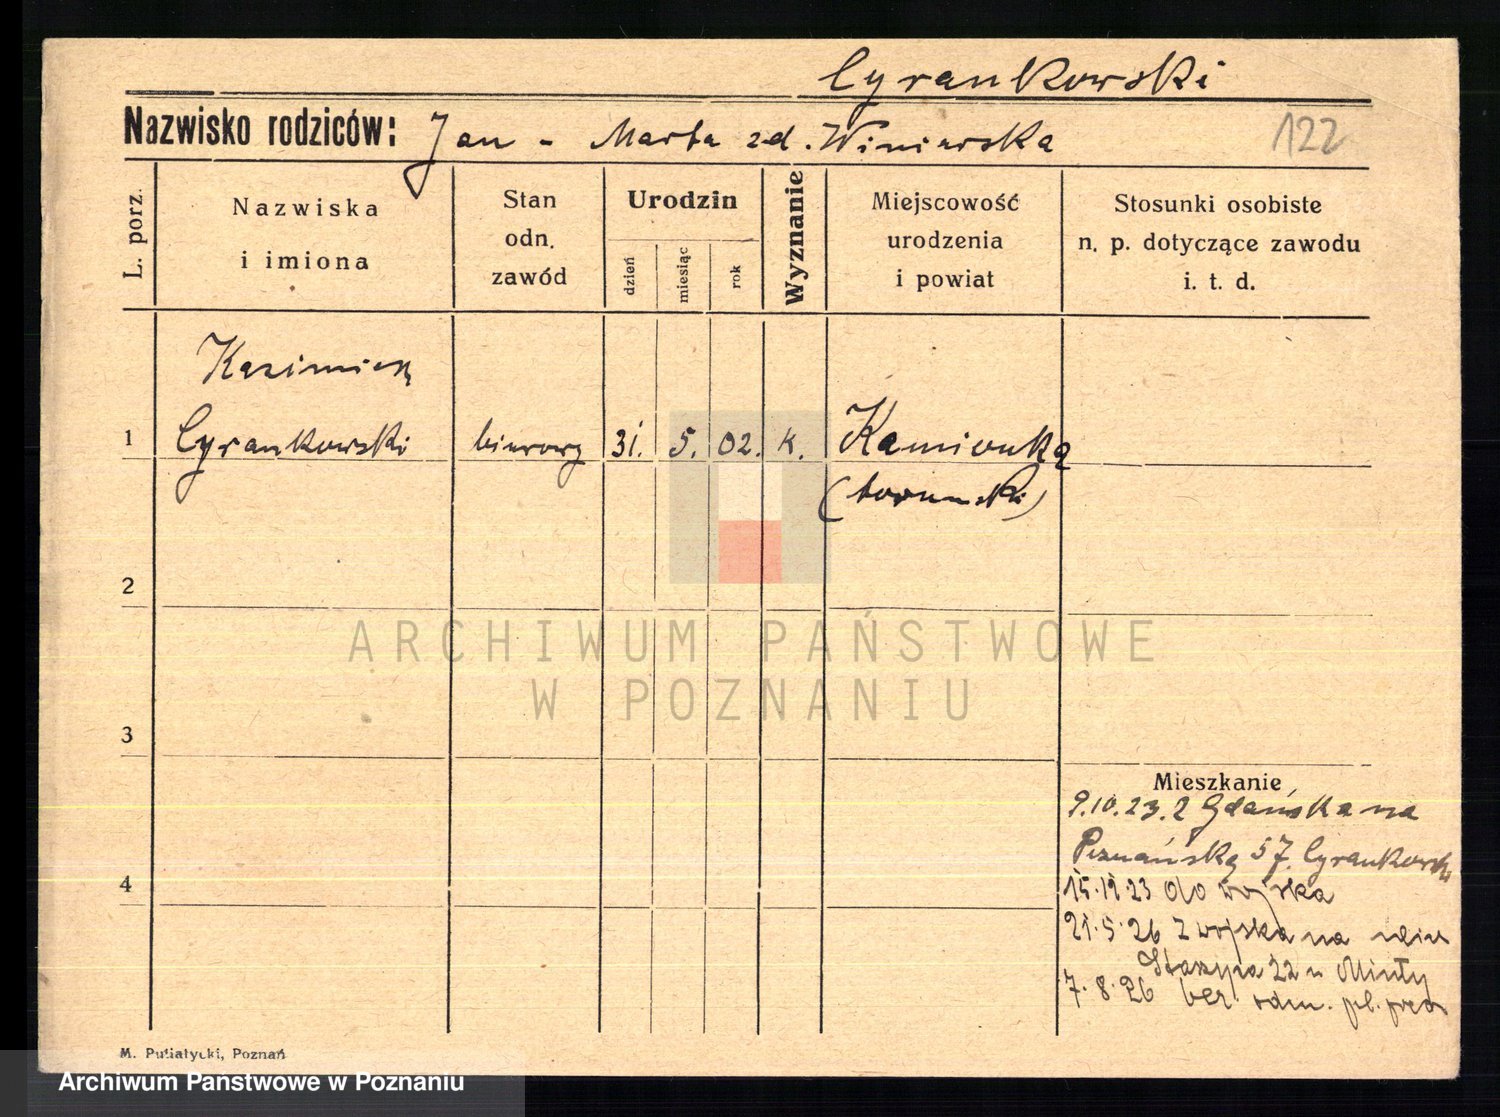 Cyrankowski
Nazwisko rodziców: Jan - Marta zd. Winiarska
122
L. porz.
Nazwiska
i imiona
Stan
odn.
zawód
Urodzin
dzień
miesiąc
rok
Wyznanie
Miejscowość
urodzenia
i powiat
Stosunki osobiste
n. p. dotyczące zawodu
i. t. d.
Kazimierz
1 Cyrankowski biurowy 31. 5. 02. k. Kamionka
(toruński)
2
3
4
Mieszkanie
9.10.23. z Gdańska na
Poznańską 57. Cyrankowski
15.12.23 do wojska
21.5.26 z wojska na
Staszyca 22 u
7.8.26
M. Putiatycki, Poznań
ARCHIWUM PAŃSTWOWE
W POZNANIU
Archiwum Państwowe w Poznaniu